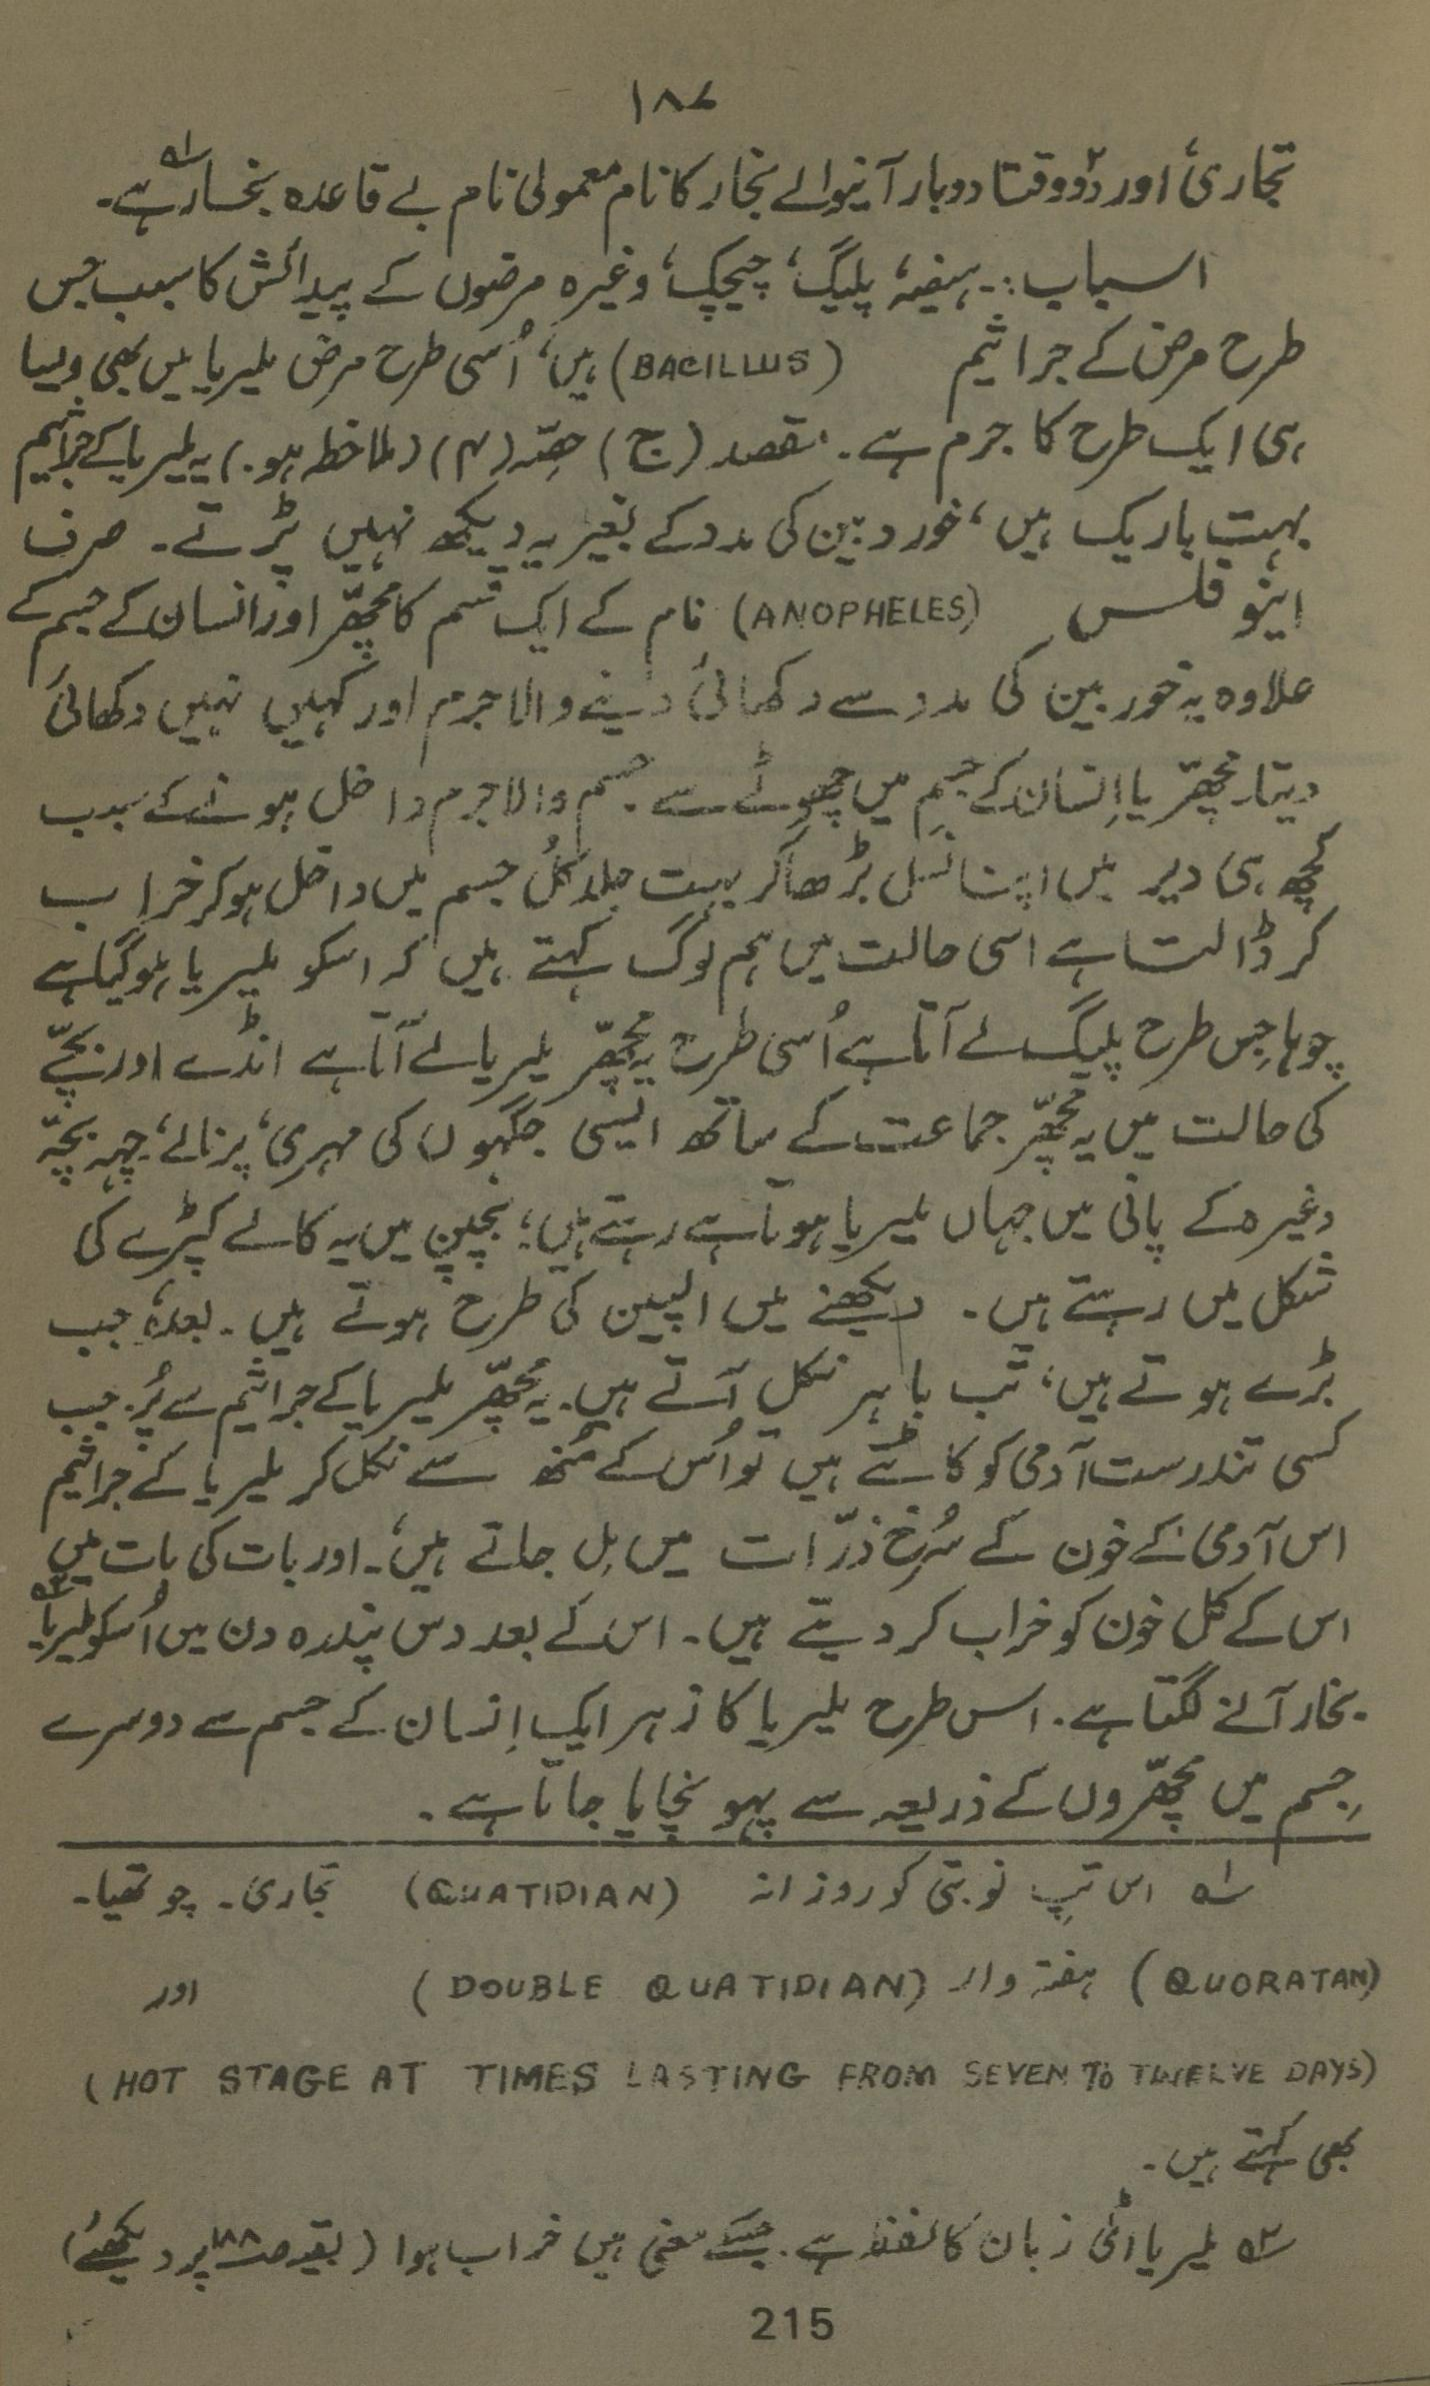 ۱۸۷
تجاریٔ اور دوٗ وقتا دوبار آنیوالے بخار کا نام معمولی نام بے قاعدہ بخار ؎۱ ہے۔
اسباب :۔ ہیضہ، پلیگ، چیچک، وغیرہ مرضوں کے پیدائش کا سبب جس
طرح مرض کے جراثیم (BACILLUS) ہیں، اُسی طرح مرض ملیریا میں بھی ویسا
ہی ایک طرح کا جرم ہے۔ مقصد (ج) حصّہ (۴) (ملاخطہ ہو۔) یہ ملیریا کے جراثیم
بہت باریک ہیں، خوردبین کی مدد کے بغیر یہ دیکھ نہیں پڑتے۔ صرف
اینوفلس (ANOPHELES) نام کے ایک قسم کا مچھّر اور انسان کے جسم کے
علاوہ یہ خوربین کی مدد سے دکھائی دینے والا جرم اور کہیں نہیں دکھائی
دیتا۔ مچھّر یا اِنسان کے جسم میں چھوٹے سے جسم والا جرم داخل ہونے کے سبب
کُچھ ہی دیر میں اپنا نسل بڑھا کر بہت جلد کُل جسم میں داخل ہو کر خراب
کر ڈالتا ہے اسی حالت میں ہم لوگ کہتے ہیں کہ اسکو ملیریا ہو گیا ہے
چوہا جِس طرح پلیگ لے آتا ہے اُسی طرح یہ مچھّر ملیریا لے آتا ہے انڈے اور بچّے
کی حالت میں یہ مچھّر جماعت کے ساتھ ایسی جگہوں کی مہری، پرنالے، چہہ بچّہ
وغیرہ کے پانی میں جہاں ملیریا ہوتا ہے رہتے ہیں؛ بچپن میں یہ کالے کیڑے کی
شکل میں رہتے ہیں۔ دیکھنے میں الپین کی طرح ہوتے ہیں۔ بعدہٗ جب
بڑے ہوتے ہیں، تب باہر نکل آتے ہیں۔ یہ مچھّر ملیریا کے جراثیم سے پُر۔ جب
کسی تندرست آدمی کو کاٹتے ہیں تو اُس کے مُنھ سے نکل کر ملیریا کے جراثیم
اس آدمی کے خون کے سُرخ ذرّات میں مِل جاتے ہیں۔ اور بات کی بات میں
اس کے کُل خون کو خراب کر دیتے ہیں۔ اس کے بعد دس پندرہ دن میں اُسکو ملیریا ؎۲
بخار آنے لگتا ہے۔ اس طرح ملیریا کا زہر ایک اِنسان کے جسم سے دوسرے
جِسم میں مچھّروں کے ذریعہ سے پہونچایا جاتا ہے۔
؎۱ اس تپِ نوبتی کو روزانہ (QUATIDIAN) تجاری۔ چوتھیا۔
(QUORATAN) ہفتہ وار (DOUBLE QUATIDIAN) اور
(HOT STAGE AT TIMES LASTING FROM SEVEN TO TWELVE DAYS)
بھی کہتے ہیں۔
؎۲ ملیریا اٹی زبان کا لفظ ہے۔ جسکے معنی ہیں خراب ہوا (بقیہ صـ۱۸۸ پر دیکھئے)
215